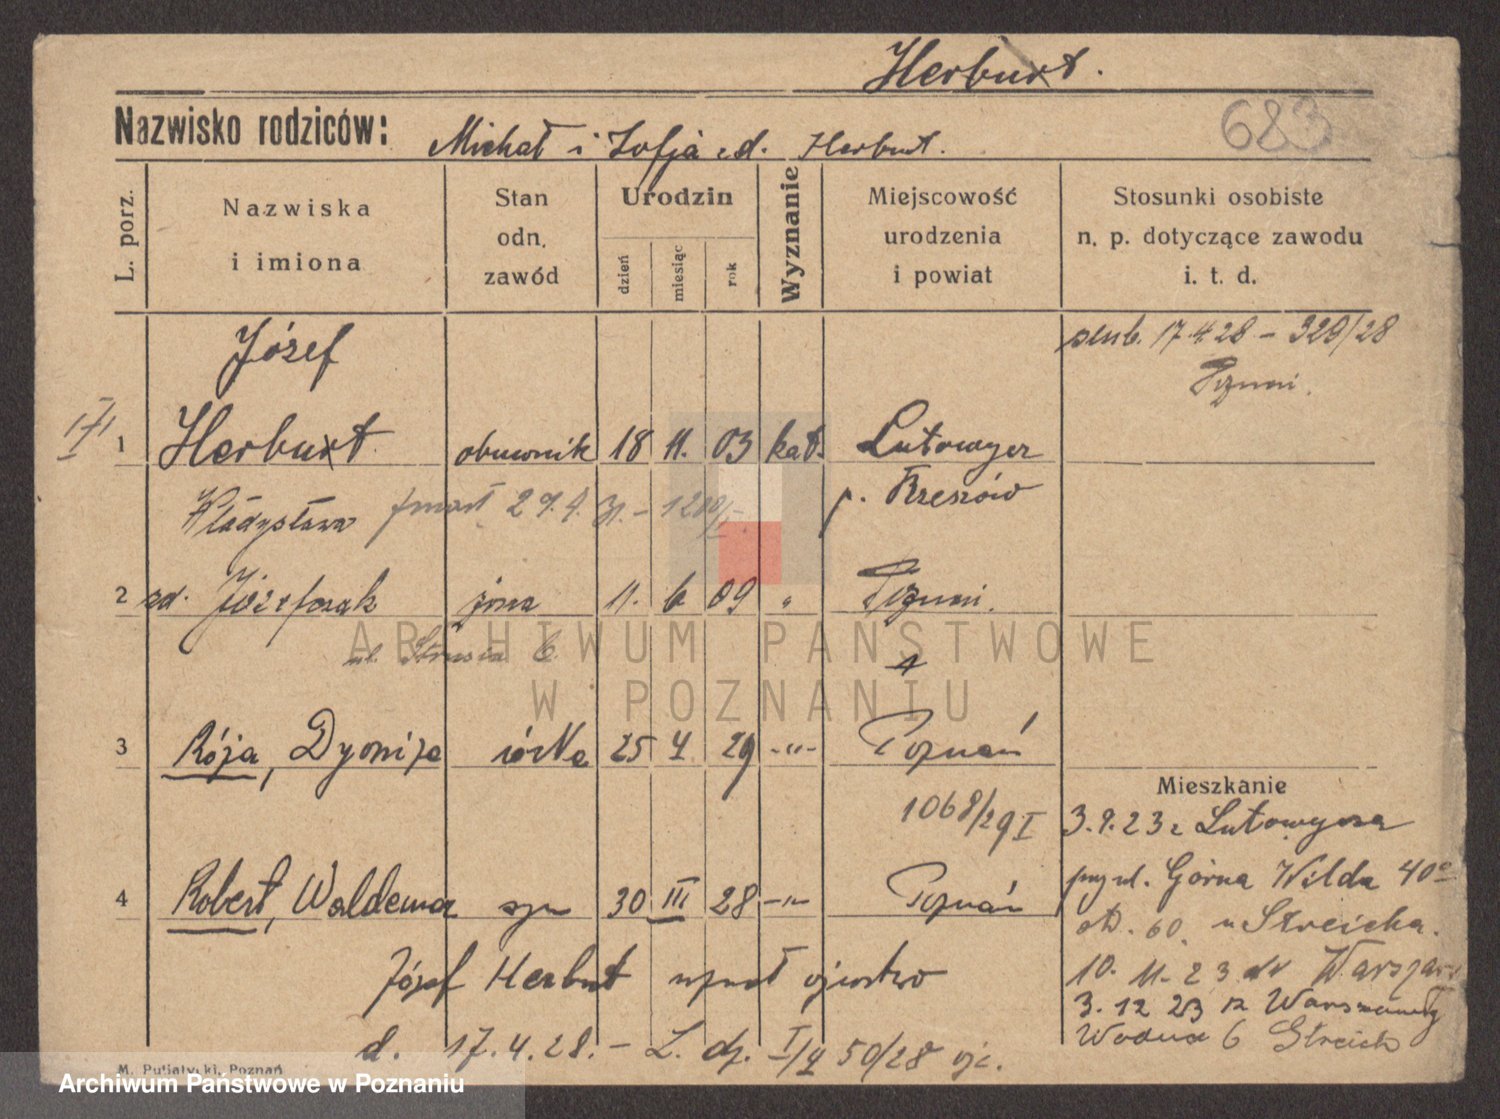 Herburt.
683
Nazwisko rodziców: Michał i Zofja zd. Herbut.
L. porz.
Nazwiska i imiona
Stan odn. zawód
Urodzin
dzień
miesiąc
rok
Wyznanie
Miejscowość urodzenia i powiat
Stosunki osobiste n. p. dotyczące zawodu i. t. d.
Józef
ślub. 17.4.28 - 329/28
Poznań.
1 Herburt obuwnik 18 11. 03 kat. Lutowyer
p. Rzeszów
Władysława zmarł 29.4.31. -
2 zd. Józefczak żona 11. 6 09 " Poznań.
ul. Strusia 6
3 Róża, Dyoniza córka 25 V 29 -"- Poznań
1068/29 I
Mieszkanie
3.9.23 z Lutowyska
4 Robert, Waldemar syn 30 III 28 -"- Poznań
przy ul. Górna Wilda 40
60. u Streicha.
Józef Herbut uznał ojcostwo
10. 11. 23 do Warszawy
3. 12 23 z Warszawy
d. 17.4.28. - L. dz. I/V 50/28 ojc.
Wodna 6 Streich
M. Putiatycki, Poznań
ARCHIWUM PAŃSTWOWE
W POZNANIU
Archiwum Państwowe w Poznaniu